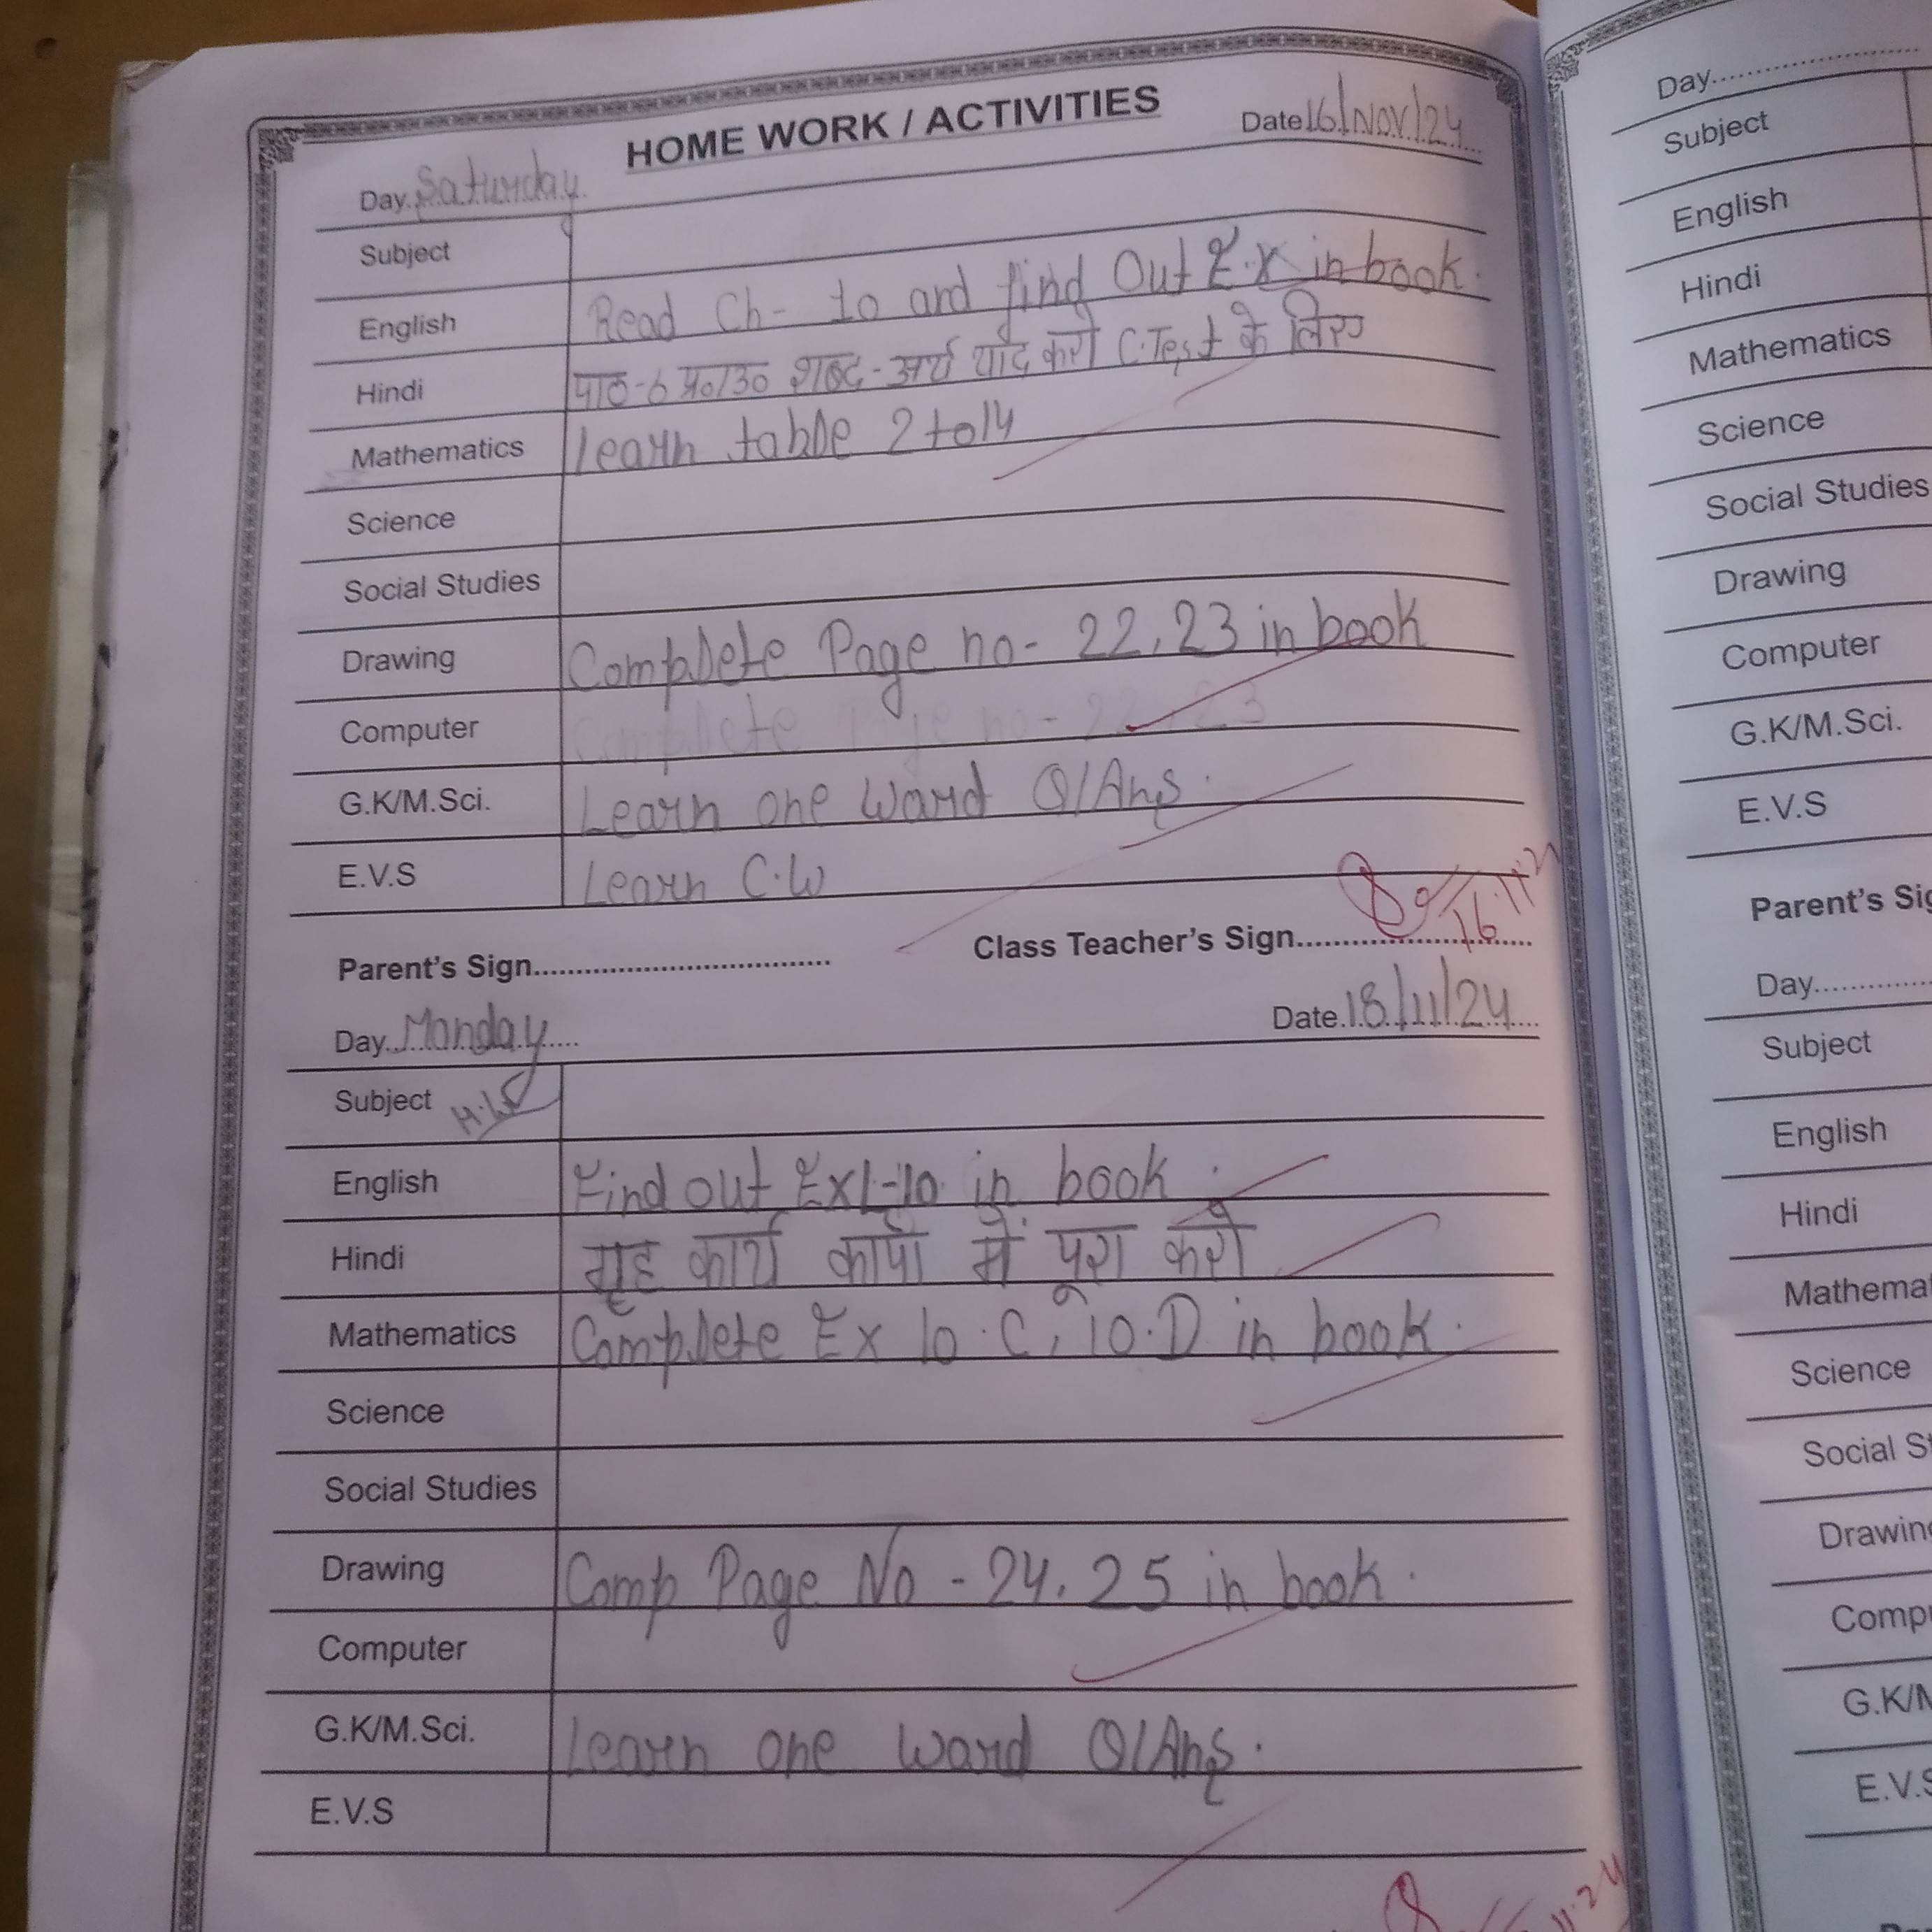 HOME WORK / ACTIVITIES
Day. Saturday Date 16/Nov/24
Subject
English Read Ch- 10 and find Out E.X in book.
Hindi पाठ-6 प्र०/उ० शब्द-अर्थ याद करो C.Test के लिए
Mathematics Learn table 2 to 14
Science
Social Studies
Drawing Complete Page no- 22,23 in book
Computer Complete Page no- 22,23
G.K/M.Sci. Learn one Word Q/Ans.
E.V.S Learn C.W
Parent's Sign Class Teacher's Sign 16.11.2
Day Monday Date 18/11/24
Subject H.W
English Find out Ex1-10 in book.
Hindi गृह कार्य कापी में पूरा करो
Mathematics Complete Ex 10.C, 10.D in book.
Science
Social Studies
Drawing Comp Page No - 24, 25 in book.
Computer
G.K/M.Sci. Learn one Word Q/Ans.
E.V.S
11.24
Day
Subject
English
Hindi
Mathematics
Science
Social Studies
Drawing
Computer
G.K/M.Sci.
E.V.S
Parent's Sig
Day
Subject
English
Hindi
Mathemat
Science
Social St
Drawing
Compu
G.K/M
E.V.S